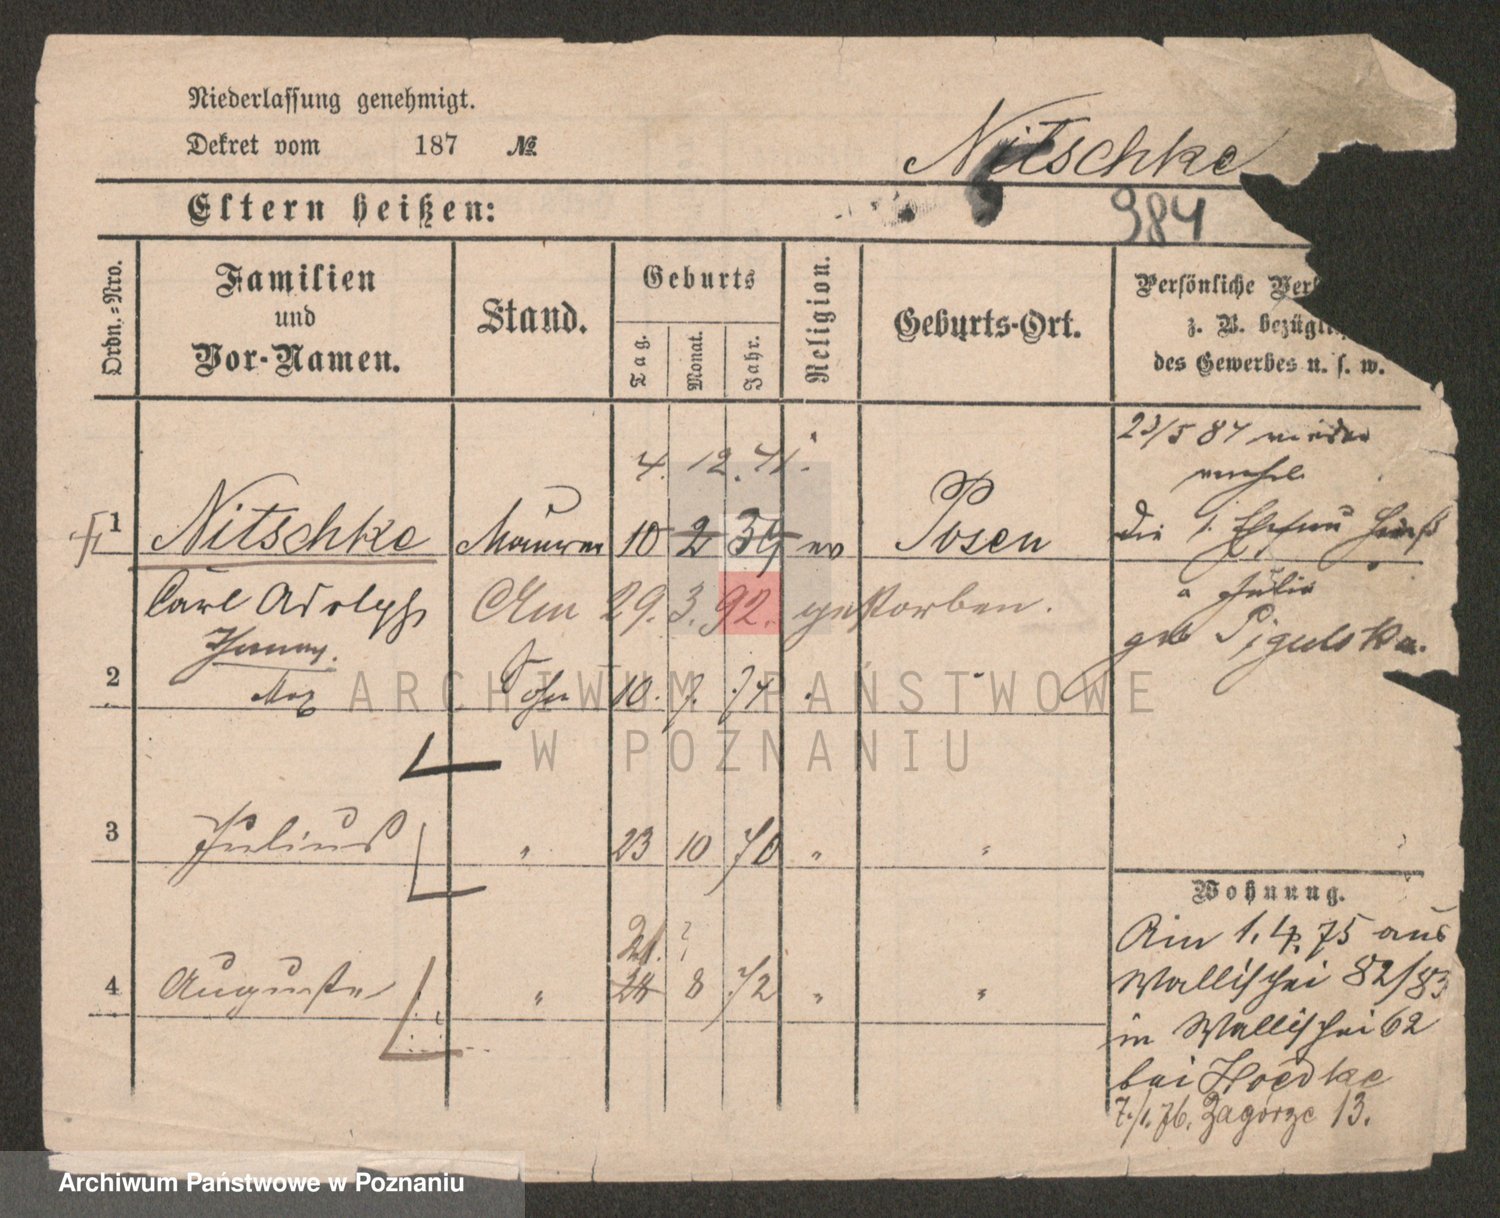 Niederlassung genehmigt.
Dekret vom 187 №
Nitschke
Eltern heißen:
984
Ordn.-Nro.
Familien
und
Vor-Namen.
Stand.
Geburts
Tag.
Monat.
Jahr.
Religion.
Geburts-Ort.
Persönliche
z. B.
des Gewerbes u. s. w.
23/5 87
4. 12. 41.
1 Nitschke Maurer 10 2 39 ev Posen
die Ehefrau
Carl Adolph Am 29. 3. 92. gestorben.
Julie
geb Pigulska.
2 Max Sohn 10. 7. 74
3 Julius " 23 10 70 " "
Wohnung.
21. ?
4 Auguste " 24 8 72 " "
Am 1. 4. 75 aus
Wallischei 82/83
in Wallischei 62
bei Hoedke
7./1. 76. Zagorze 13.
ARCHIWUM PAŃSTWOWE
W POZNANIU
Archiwum Państwowe w Poznaniu